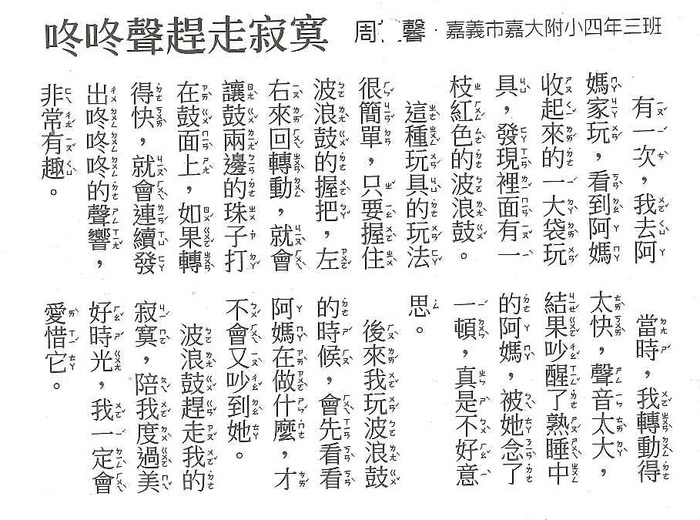 咚咚聲趕走寂寞
周馨．嘉義市嘉大附小四年三班
有一次，我去阿
媽家玩，看到阿媽
收起來的一大袋玩
具，發現裡面有一
枝紅色的波浪鼓。
這種玩具的玩法
很簡單，只要握住
波浪鼓的握把，左
右來回轉動，就會
讓鼓兩邊的珠子打
在鼓面上，如果轉
得快，就會連續發
出咚咚咚的聲響，
非常有趣。
當時，我轉動得
太快，聲音太大，
結果吵醒了熟睡中
的阿媽，被她念了
一頓，真是不好意
思。
後來我玩波浪鼓
的時候，會先看看
阿媽在做什麼，才
不會又吵到她。
波浪鼓趕走我的
寂寞，陪我度過美
好時光，我一定會
愛惜它。